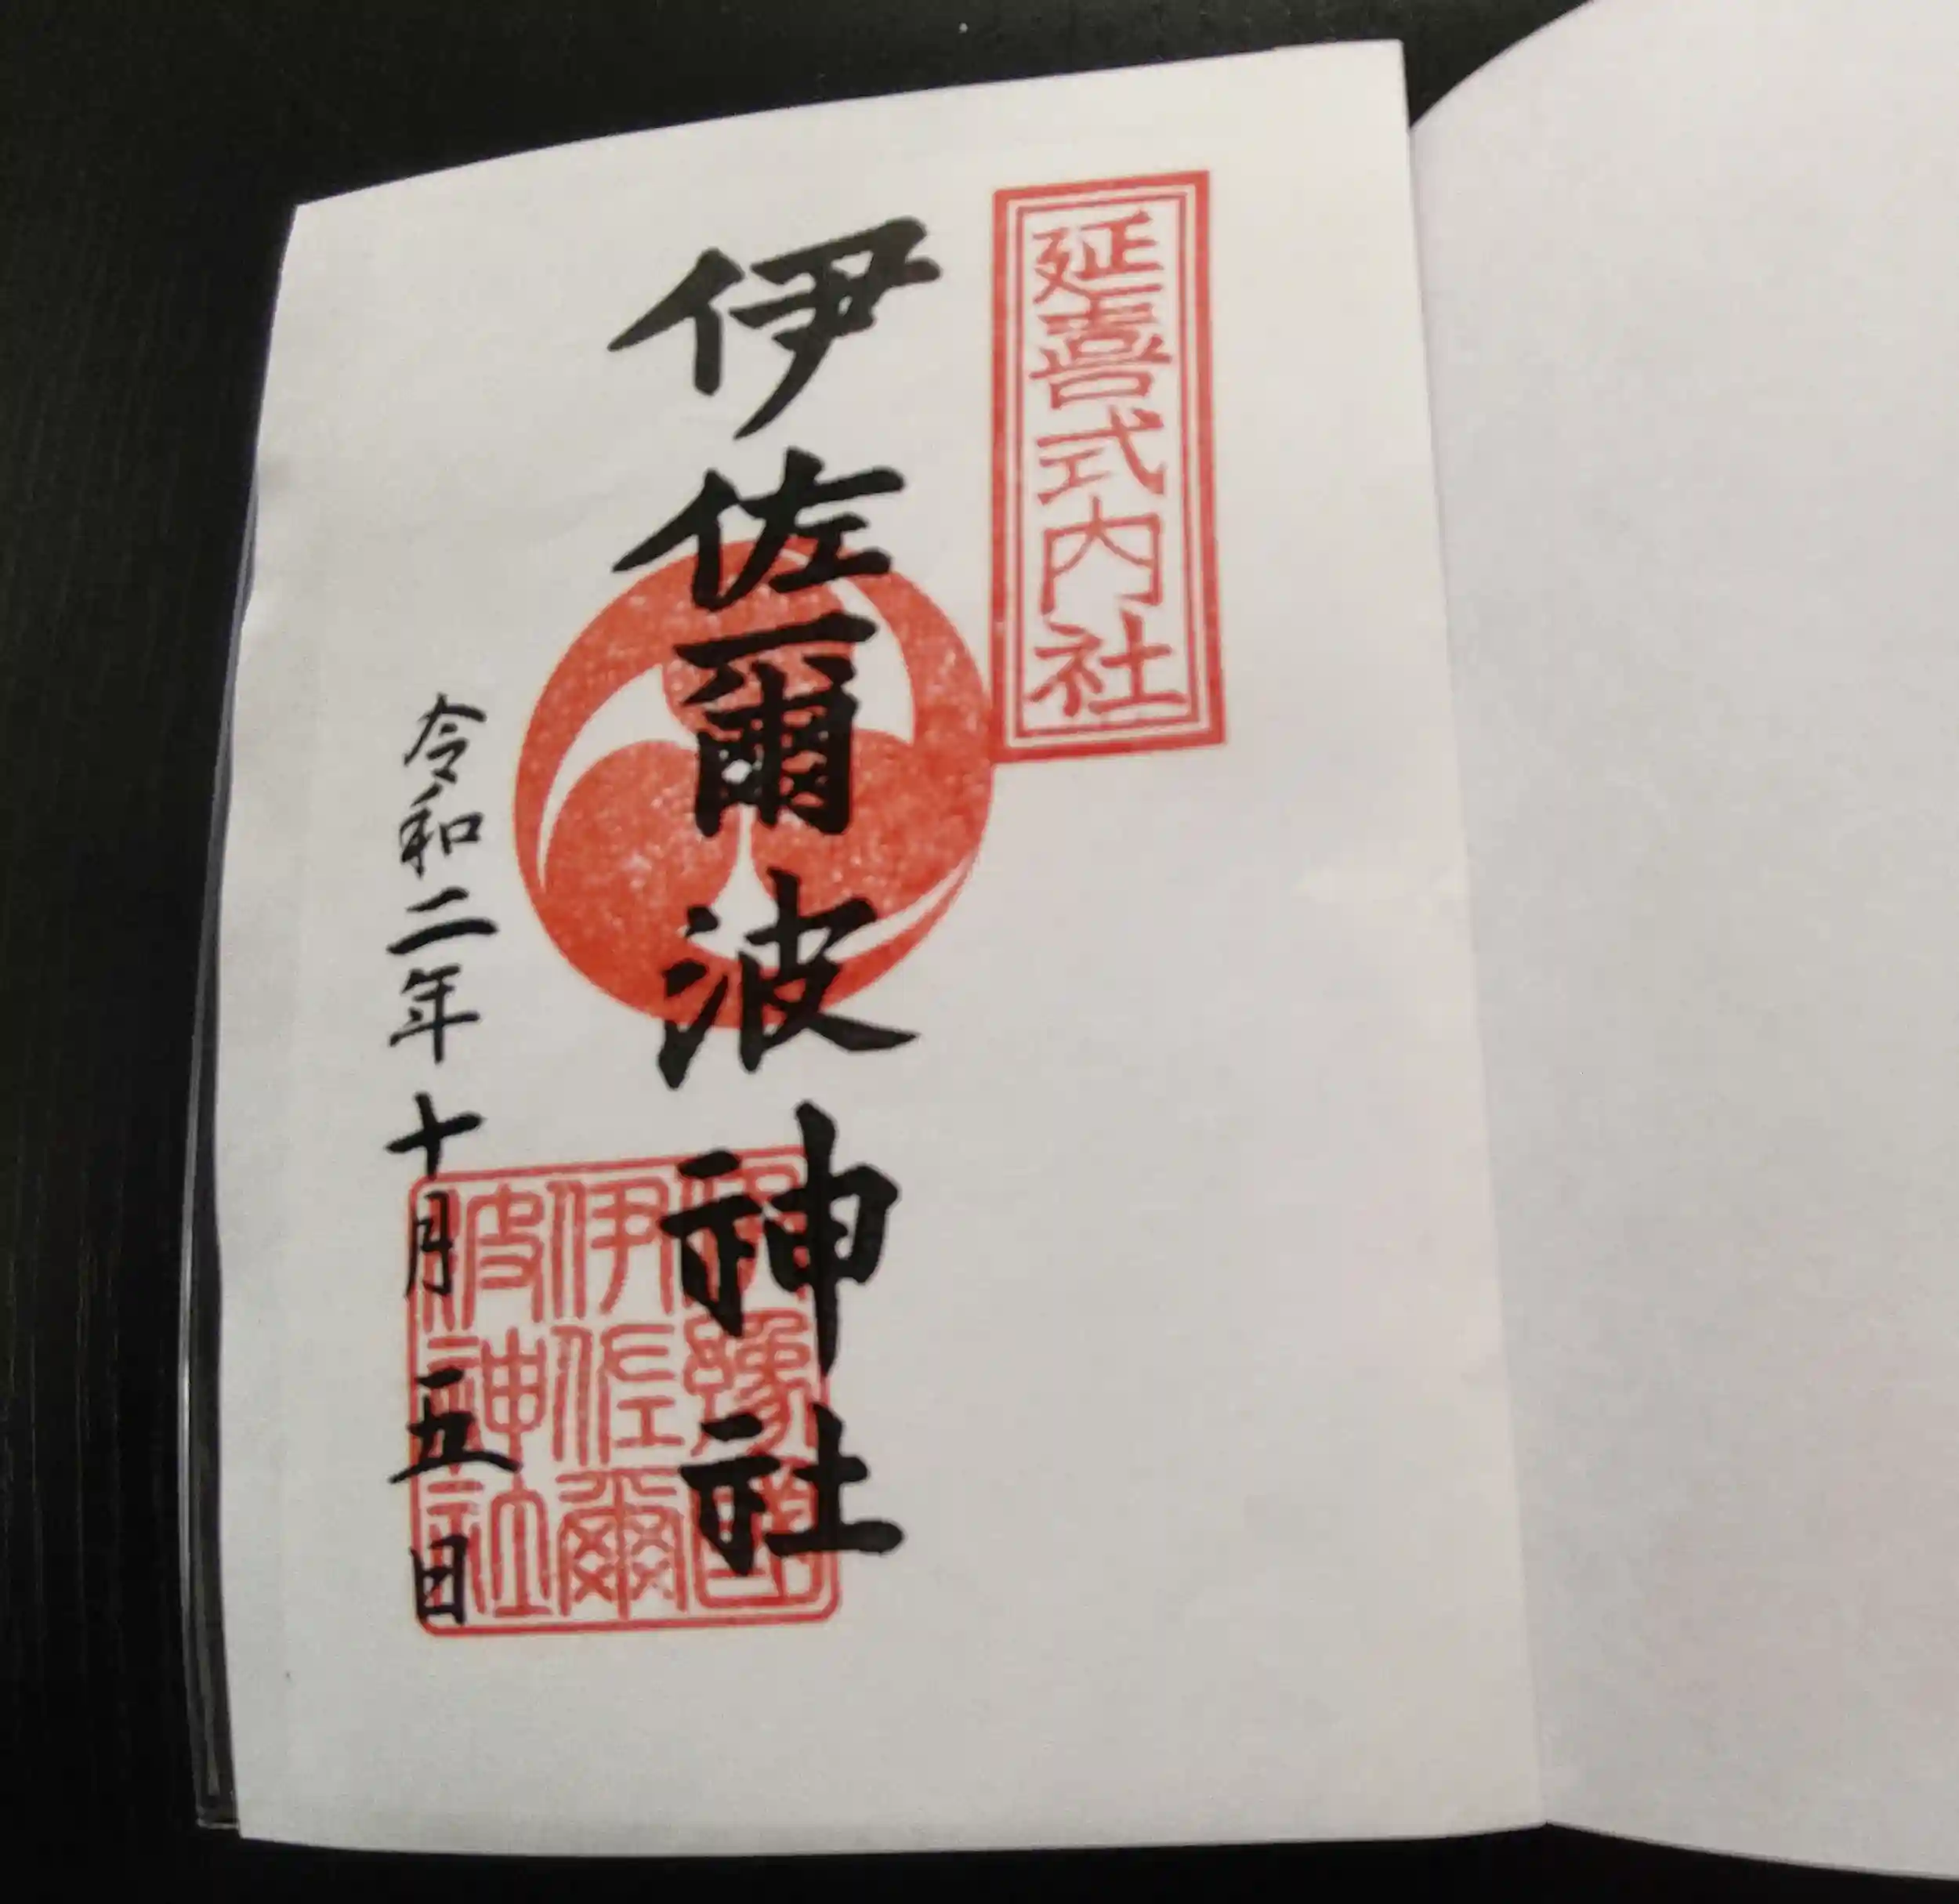 延喜式内社
伊佐爾波神社
豫國
伊佐爾
波神社
令和二年十月五日